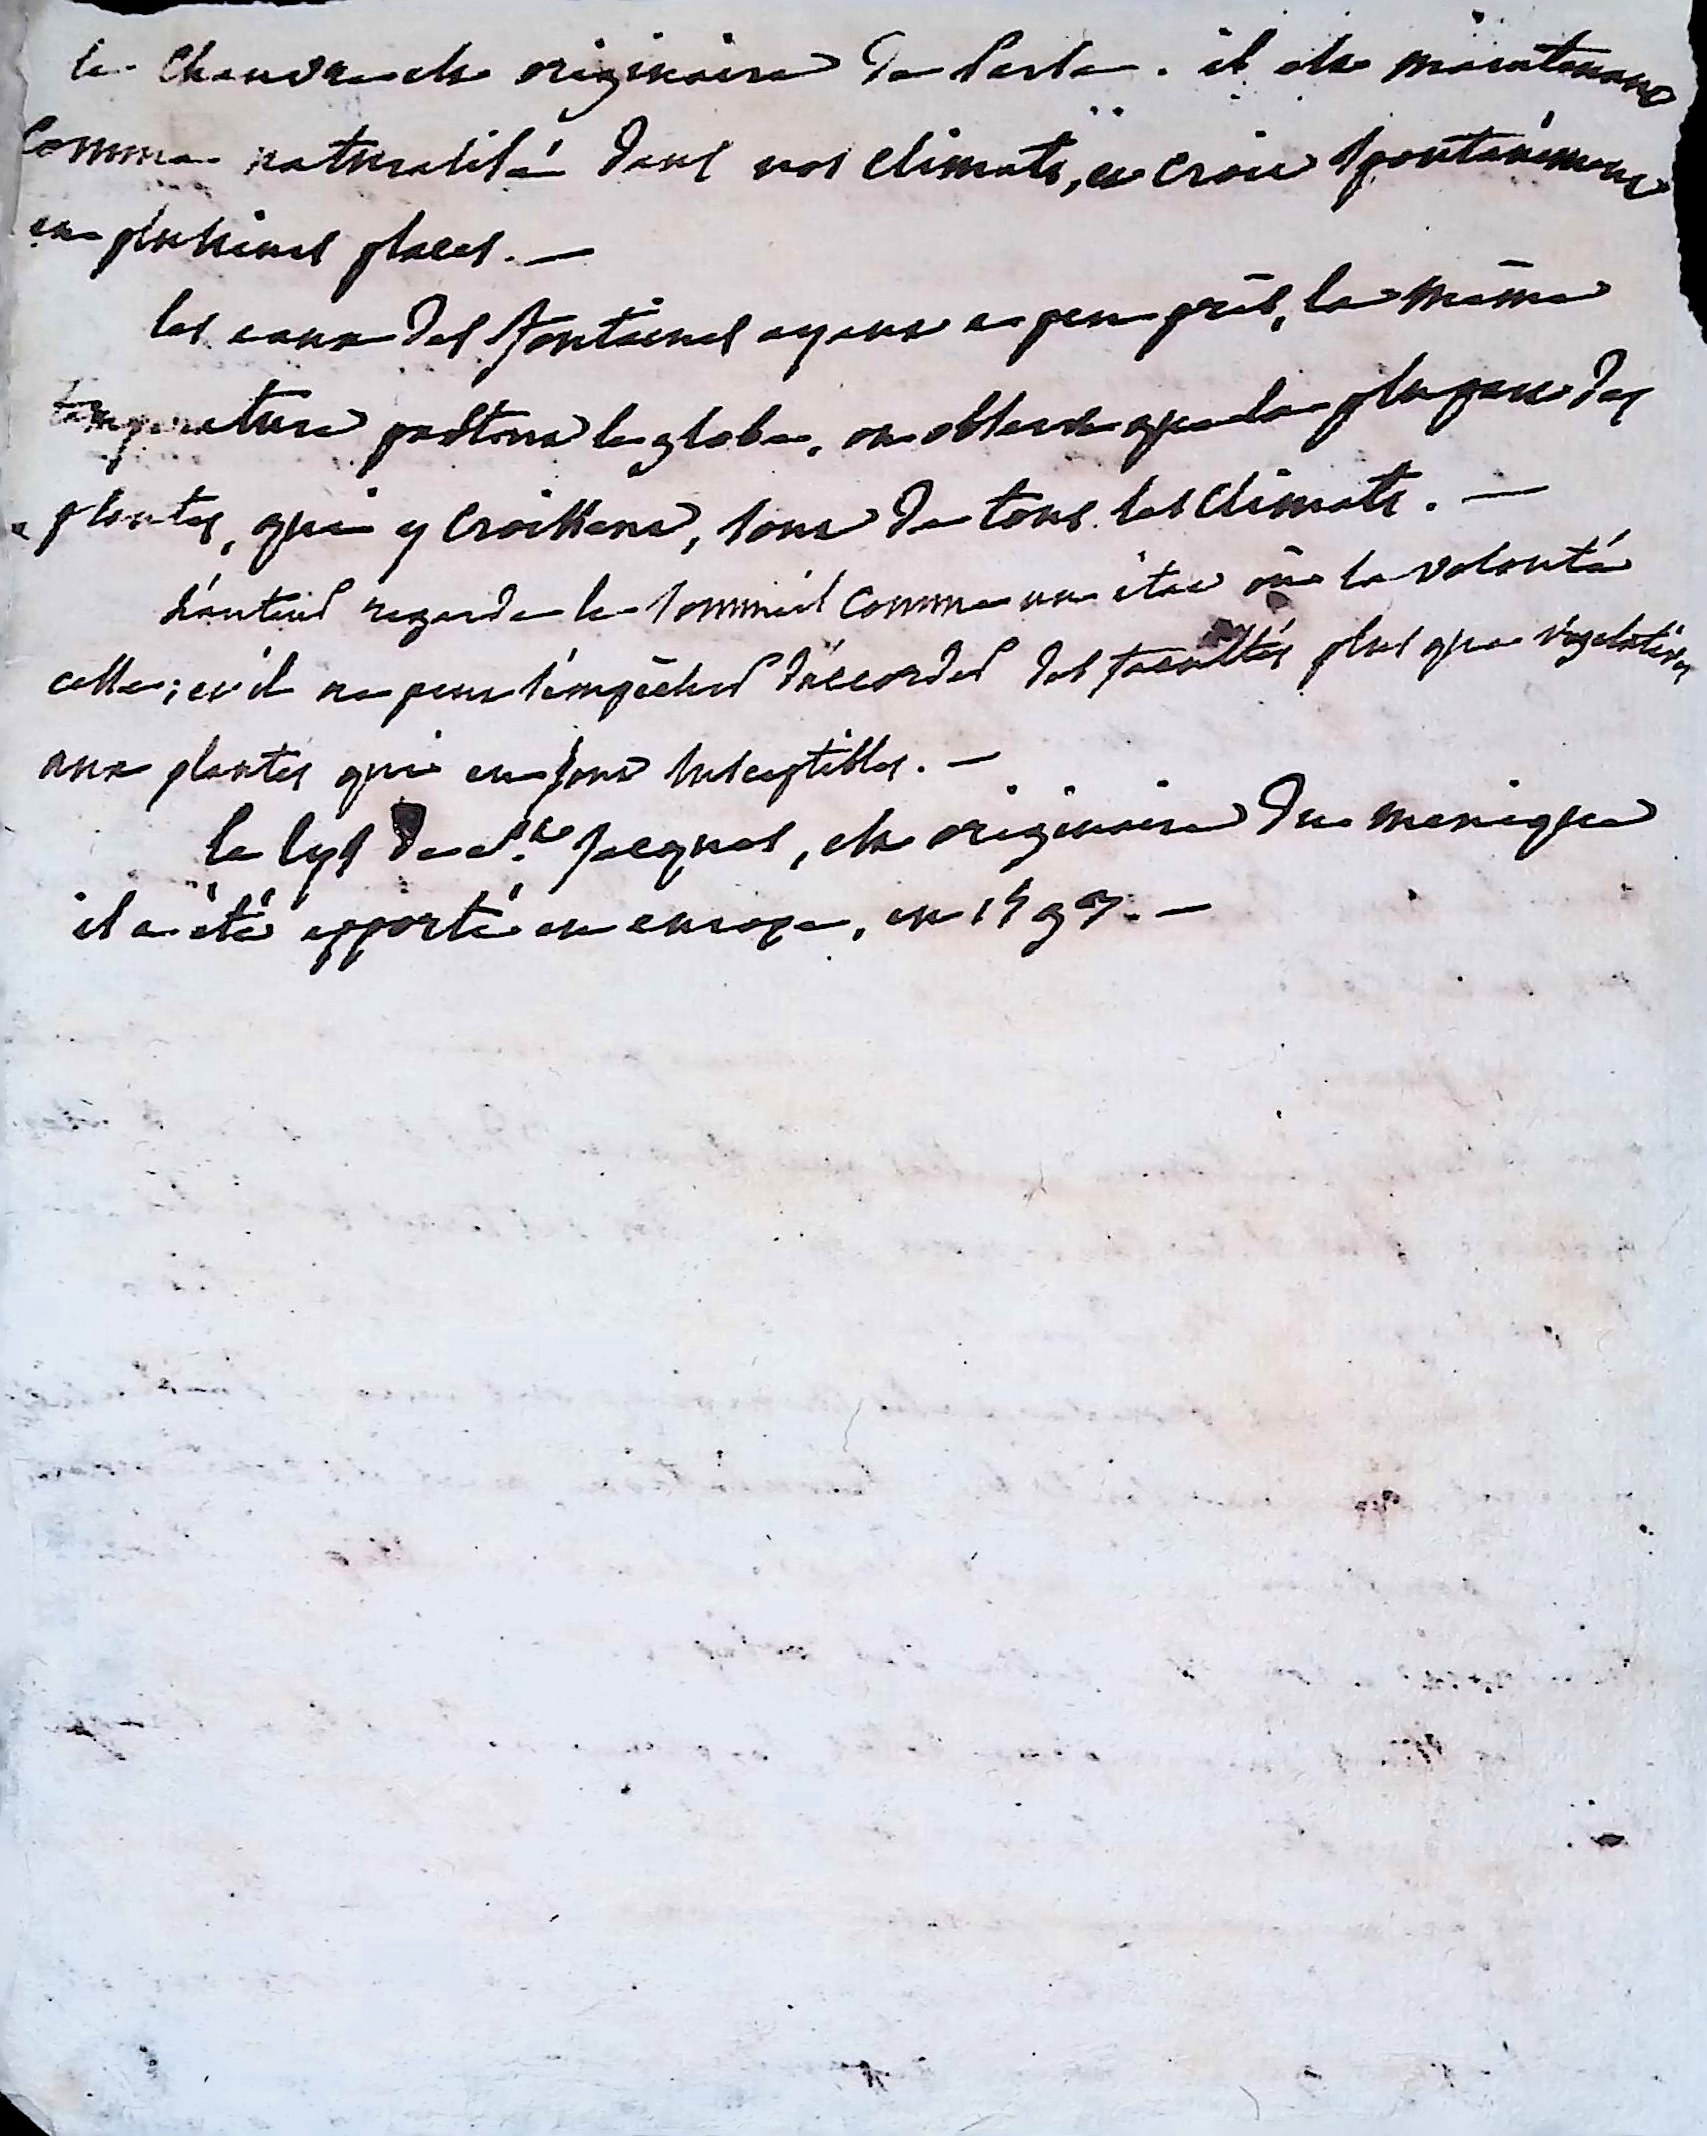 le chanvre est originaire de Perse. il est maintenant
comme naturalisé dans nos climats, et croit spontanément
en plusieurs places. —
les eaux des fontaines ayant a peu près, la même
température partout le globe, on observe que la plupart des
plantes, qui y croissent, sont de tous les climats. —
L'auteur regarde le sommeil comme un état où la volonté
cesse; et il ne peut s'empêcher d'accorder des facultés plus que végétatives
aux plantes qui en sont susceptibles. —
le lys de St. Jacques, est originaire du mexique
il a été apporté en europe, en 1593. —